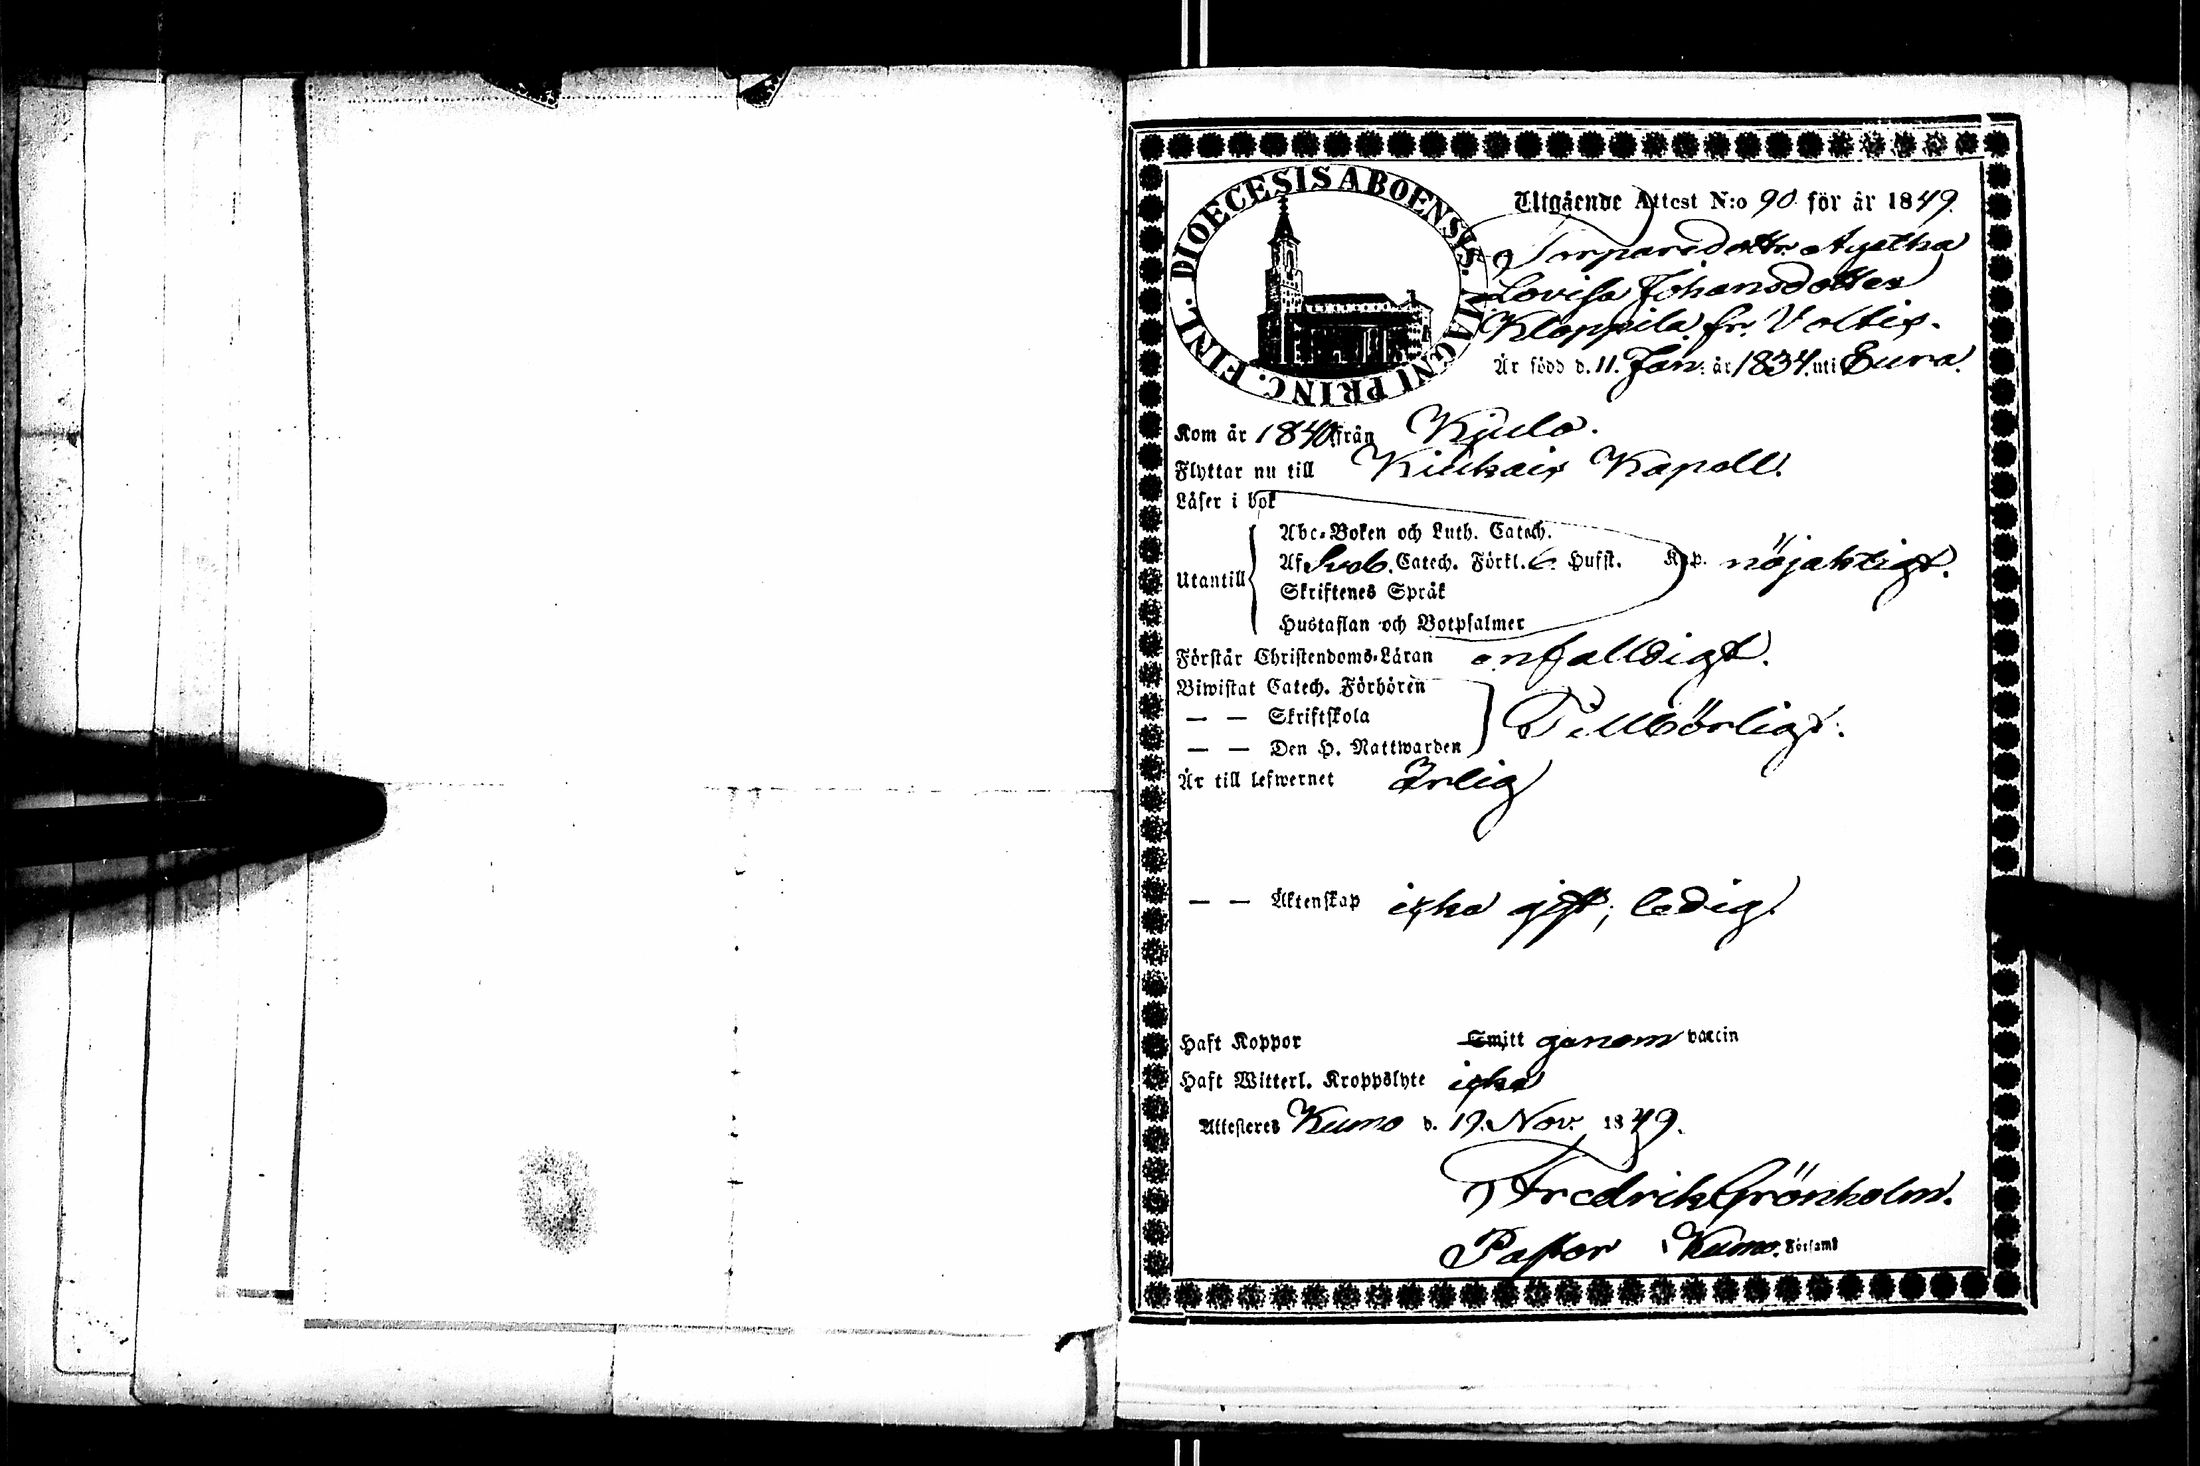 DIOECESIS ABOENSIS. MAGNI PRINC. FINL.
Utgående Attest N:o 90 för år 1849.
Torparedottr. Agatha
Lovisa Johansdotter
Kloppila fr. Voltis.
Är född d. 11. Jan. år 1834. uti Eura.
Kom år 1840 från Kjulo.
Flyttar nu till Kiukais Kapell.
Läser i bok
Utantill
Abc-Boken och Luth. Catech.
Af Sveb. Catech. Förkl. 6. Hufst. Kap. nöjaktigt.
Skriftenes Språk
Hustaflan och Botpsalmer
Förstår Christendoms-Läran enfalldigt.
Biwistat Catech. Förhören
— — Skriftskola Tillbörligt.
— — Den H. Nattwarden
Är till lefwernet Ärlig
— — Äktenskap icke gift; ledig.
Haft Koppor Smitt genom vaccin
Haft Witterl. Kroppslyte icke
Attesteres Kumo d. 19. Nov. 1849.
Fredrik Grönholm.
Pastor i Kumo. Församl